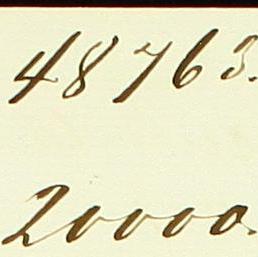 48763.
20000.